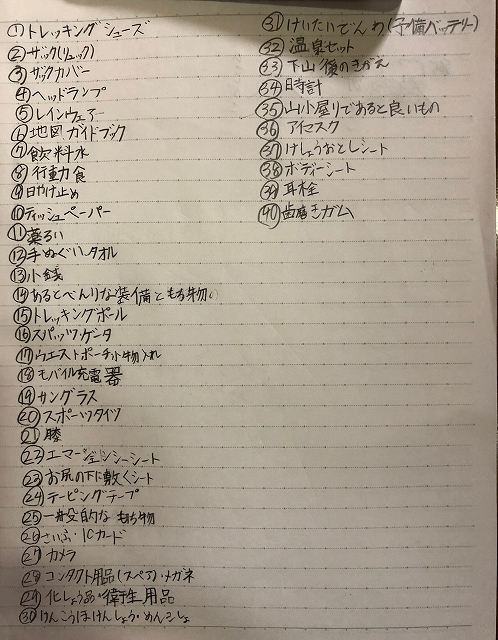 ①トレッキングシューズ
②ザック(リュック)
③ザックカバー
④ヘッドランプ
⑤レインウェアー
⑥地図ガイドブック
⑦飲料水
⑧行動食
⑨日やけ止め
⑩ティッシュペーパー
⑪薬るい
⑫手ぬぐい、タオル
⑬小銭
⑭あるとべんりな装備ともち物
⑮トレッキングポール
⑯スパッツ・ゲータ
⑰ウエストポーチ小物入れ
⑱モバイル充電器
⑲サングラス
⑳スポーツタイツ
㉑膝
㉒エマージェンシーシート
㉓お尻の下に敷くシート
㉔テーピングテープ
㉕一般的なもち物
㉖さいふ・ICカード
㉗カメラ
㉘コンタクト用品(スペア)・メガネ
㉙化しょう品・衛生用品
㉚けんこうほけんしょう・めんきょ
㉛けいたいでんわ(予備バッテリー)
㉜温泉セット
㉝下山後のきがえ
㉞時計
㉟山小屋りであると良いもの
㊱アイマスク
㊲けしょうおとしシート
㊳ボディーシート
㊴耳栓
㊵歯磨きガム